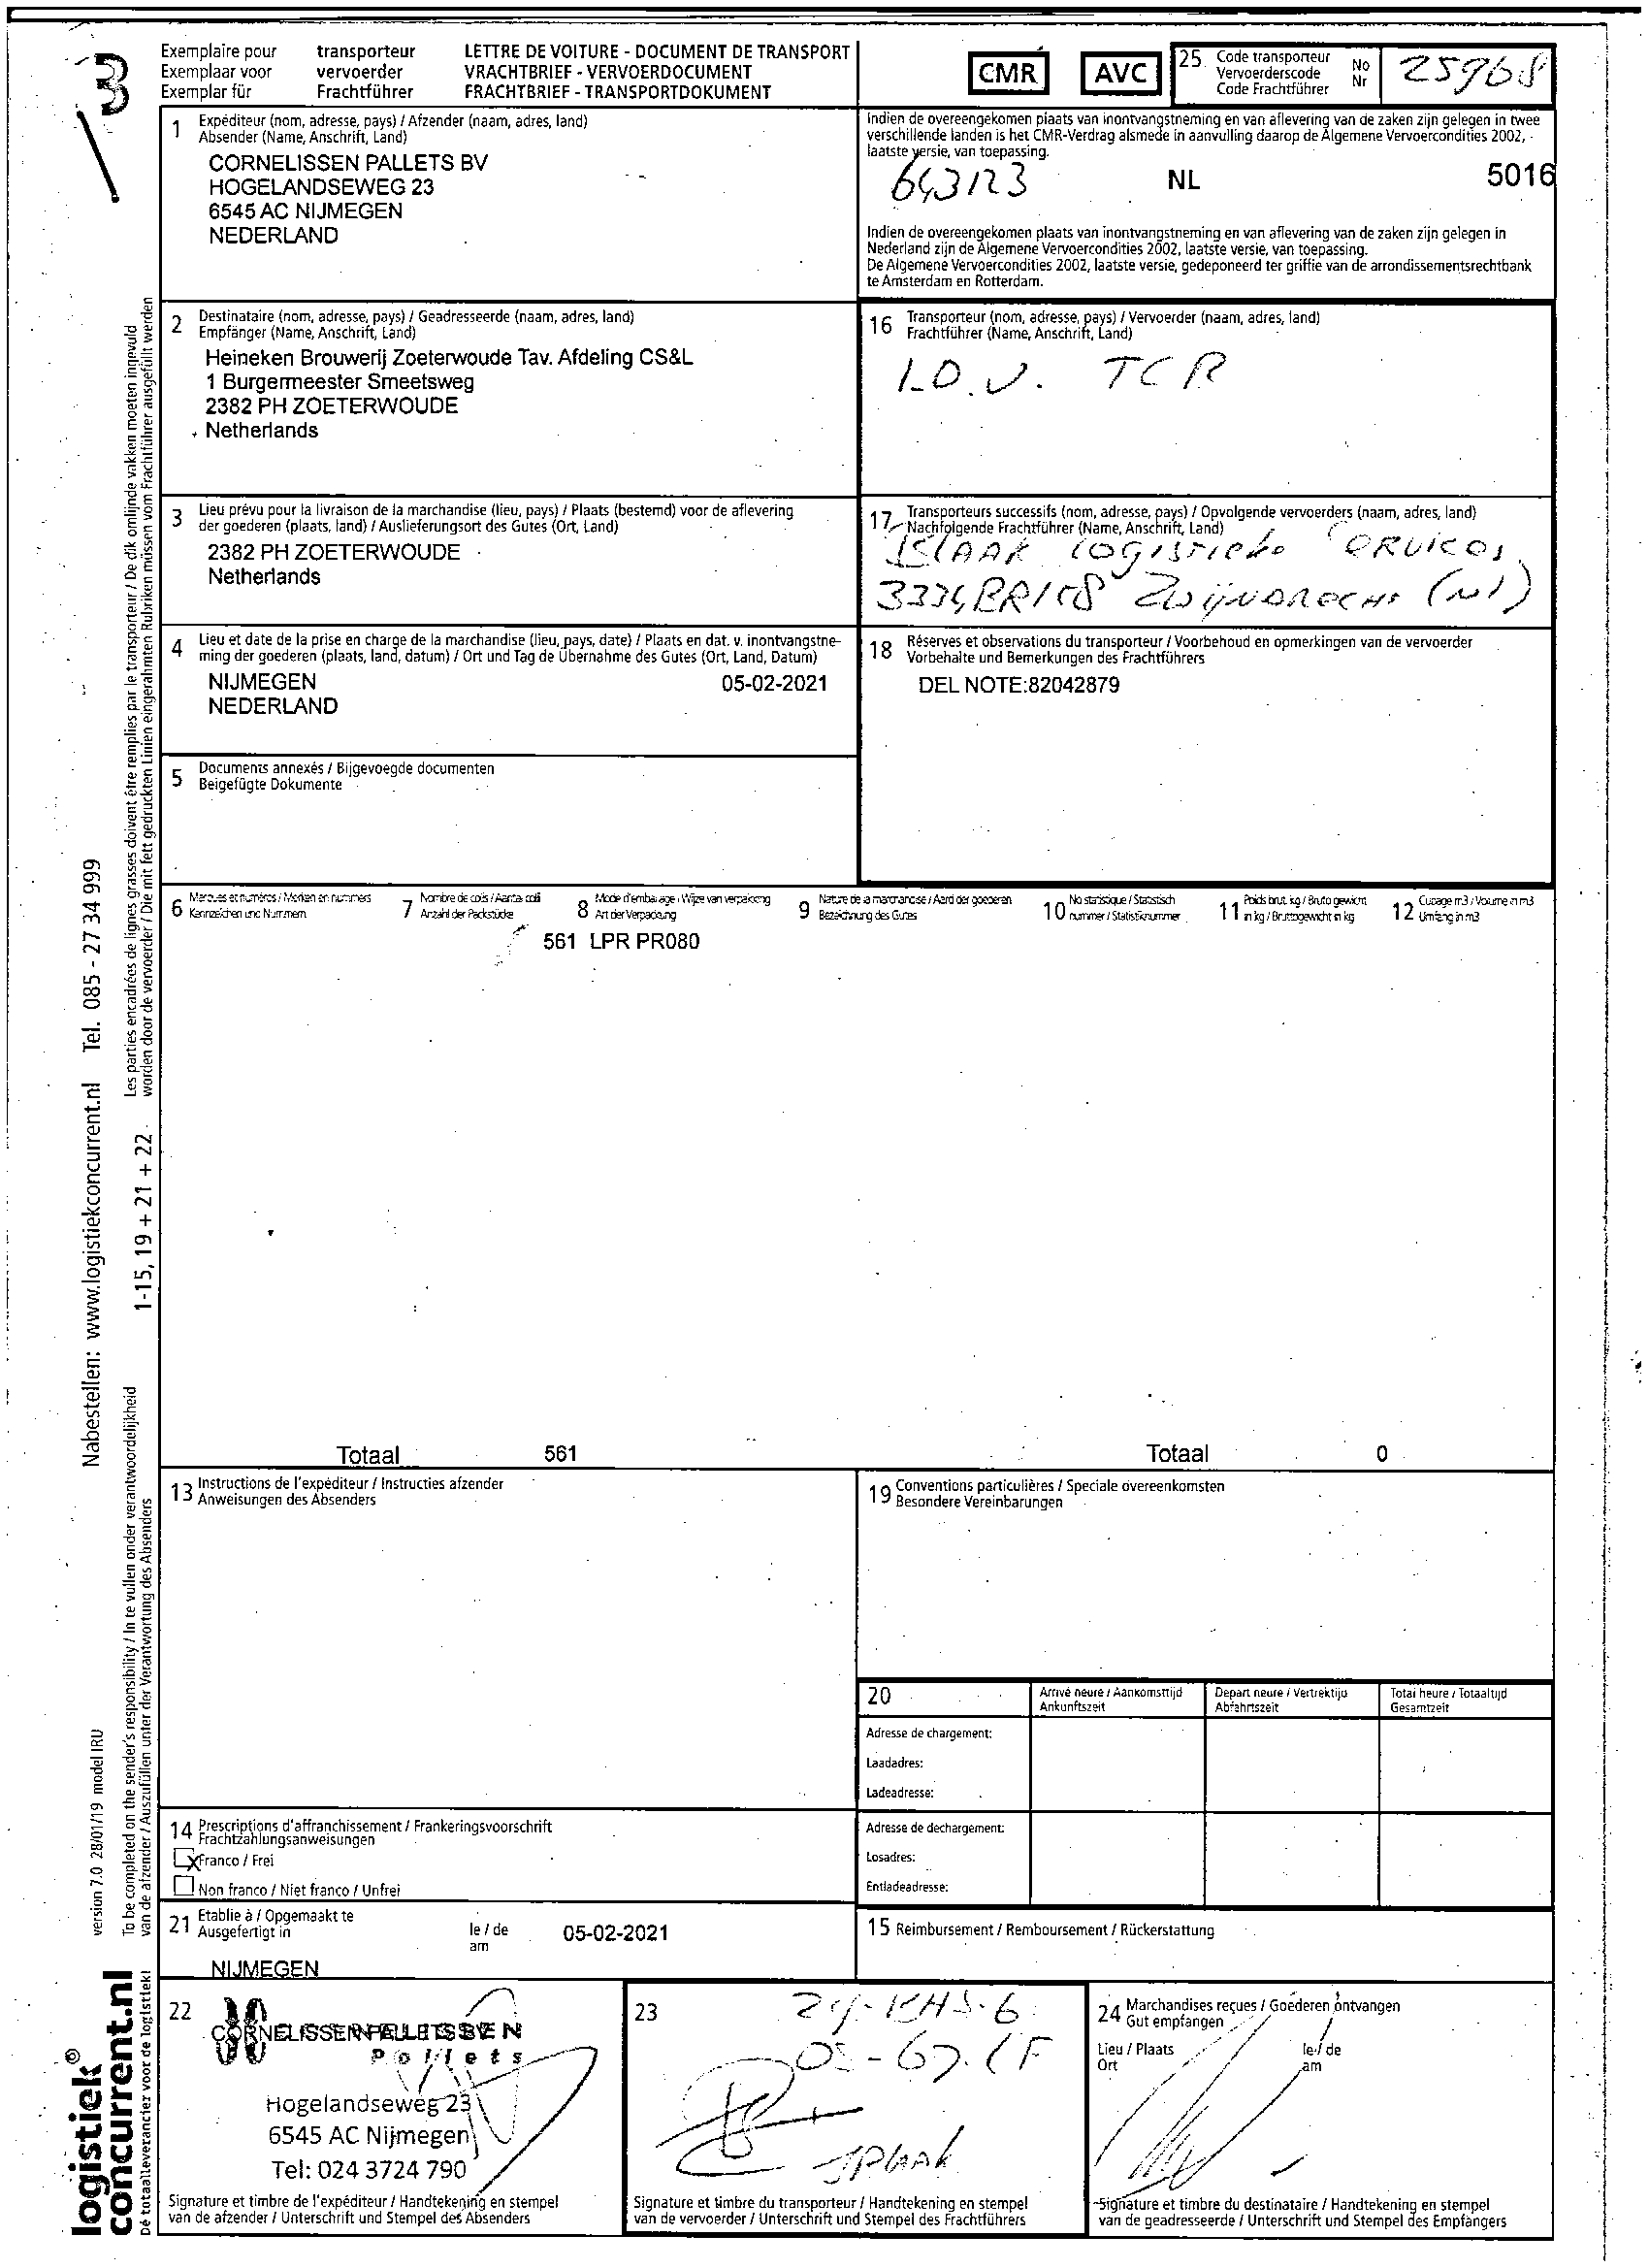 3
Exemplaire pour transporteur LETTRE DE VOITURE - DOCUMENT DE TRANSPORT
Exemplaar voor vervoerder VRACHTBRIEF - VERVOERDOCUMENT
Exemplar für Frachtführer FRACHTBRIEF - TRANSPORTDOKUMENT
CMR AVC
25 Code transporteur No
Vervoerderscode Nr
Code Frachtführer
25968
1 Expéditeur (nom, adresse, pays) / Afzender (naam, adres, land)
Absender (Name, Anschrift, Land)
CORNELISSEN PALLETS BV
HOGELANDSEWEG 23
6545 AC NIJMEGEN
NEDERLAND
Indien de overeengekomen plaats van inontvangstneming en van aflevering van de zaken zijn gelegen in twee
verschillende landen is het CMR-Verdrag alsmede in aanvulling daarop de Algemene Vervoercondities 2002,
laatste versie, van toepassing.
643123 NL 5016
Indien de overeengekomen plaats van inontvangstneming en van aflevering van de zaken zijn gelegen in
Nederland zijn de Algemene Vervoercondities 2002, laatste versie, van toepassing.
De Algemene Vervoercondities 2002, laatste versie, gedeponeerd ter griffie van de arrondissementsrechtbank
te Amsterdam en Rotterdam.
2 Destinataire (nom, adresse, pays) / Geadresseerde (naam, adres, land)
Empfänger (Name, Anschrift, Land)
Heineken Brouwerij Zoeterwoude Tav. Afdeling CS&L
1 Burgermeester Smeetsweg
2382 PH ZOETERWOUDE
Netherlands
16 Transporteur (nom, adresse, pays) / Vervoerder (naam, adres, land)
Frachtführer (Name, Anschrift, Land)
I.O.V. TCR
3 Lieu prévu pour la livraison de la marchandise (lieu, pays) / Plaats (bestemd) voor de aflevering
der goederen (plaats, land) / Auslieferungsort des Gutes (Ort, Land)
2382 PH ZOETERWOUDE
Netherlands
17 Transporteurs successifs (nom, adresse, pays) / Opvolgende vervoerders (naam, adres, land)
Nachfolgende Frachtführer (Name, Anschrift, Land)
KLAAK
ZWIJNDRECHT (NL)
4 Lieu et date de la prise en charge de la marchandise (lieu, pays, date) / Plaats en dat. v. inontvangstne-
ming der goederen (plaats, land, datum) / Ort und Tag de Übernahme des Gutes (Ort, Land, Datum)
NIJMEGEN 05-02-2021
NEDERLAND
18 Réserves et observations du transporteur / Voorbehoud en opmerkingen van de vervoerder
Vorbehalte und Bemerkungen des Frachtführers
DEL NOTE:82042879
5 Documents annexés / Bijgevoegde documenten
Beigefügte Dokumente
6 Marques et numéros / Merken en nummers
Kennzeichen und Nummern
7 Nombre de colis / Aantal colli
Anzahl der Packstücke
8 Mode d'emballage / Wijze van verpakking
Art der Verpackung
9 Nature de la marchandise / Aard der goederen
Bezeichnung des Gutes
10 No statistique / Statistisch
nummer / Statistiknummer
11 Poids brut, kg / Bruto gewicht
in kg / Bruttogewicht in kg
12 Cubage m3 / Volume in m3
Umfang in m3
561 LPR PR080
Totaal 561 Totaal 0
13 Instructions de l'expéditeur / Instructies afzender
Anweisungen des Absenders
19 Conventions particulières / Speciale overeenkomsten
Besondere Vereinbarungen
20 Arrivé heure / Aankomsttijd
Ankunftszeit
Depart heure / Vertrektijd
Abfahrtszeit
Total heure / Totaaltijd
Gesamtzeit
Adresse de chargement:
Laadadres:
Ladeadresse:
Adresse de dechargement:
Losadres:
Entladeadresse:
14 Prescriptions d'affranchissement / Frankeringsvoorschrift
Frachtzahlungsanweisungen
X Franco / Frei
Non franco / Niet franco / Unfrei
21 Etablie à / Opgemaakt te le / de 05-02-2021
Ausgefertigt in am
NIJMEGEN
15 Reimbursement / Remboursement / Rückerstattung
22
Pallets
Hogelandseweg 23
6545 AC Nijmegen
Tel: 024 3724 790
Signature et timbre de l'expéditeur / Handtekening en stempel
van de afzender / Unterschrift und Stempel des Absenders
23
Signature et timbre du transporteur / Handtekening en stempel
van de vervoerder / Unterschrift und Stempel des Frachtführers
24 Marchandises reçues / Goederen ontvangen
Gut empfangen
Lieu / Plaats le / de
Ort am
Signature et timbre du destinataire / Handtekening en stempel
van de geadresseerde / Unterschrift und Stempel des Empfängers
Les parties encadrées de lignes grasses doivent être remplies par le transporteur / De dik omlijnde vakken moeten ingevuld
worden door de vervoerder / Die mit fett gedruckten Linien eingerahmten Rubriken müssen vom Frachtführer ausgefüllt werden
Nabestellen: www.logistiekconcurrent.nl Tel. 085 - 27 34 999
1-15, 19 + 21 + 22
To be completed on the sender's responsibility / In te vullen onder verantwoordelijkheid
van de afzender / Auszufüllen unter der Verantwortung des Absenders
version 7.0 28/01/19 model IRU
logistiek©
concurrent.nl
Dé totaalleverancier voor de logistiek!